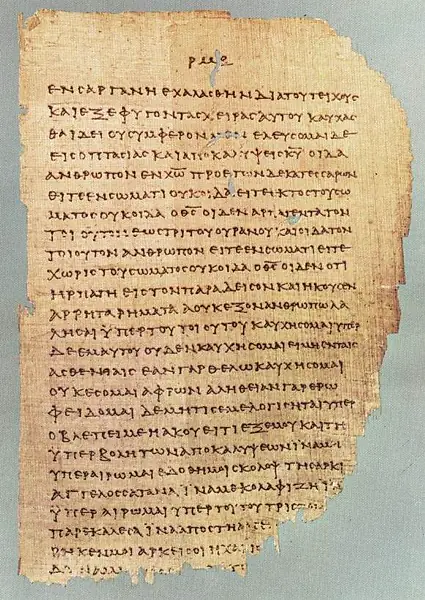 ΡΜΘ
ΕΝ ΣΑΡΓΑΝΗ ΕΧΑΛΑΣΘΗΝ ΔΙΑ ΤΟΥ ΤΕΙΧΟΥΣ
ΚΑΙ ΕΞΕΦΥΓΟΝ ΤΑΣ ΧΕΙΡΑΣ ΑΥΤΟΥ ΚΑΥΧΑΣ
ΘΑΙ ΔΕΙ ΟΥ ΣΥΜΦΕΡΟΝ ΕΛΕΥΣΟΜΑΙ ΔΕ
ΕΙΣ ΟΠΤΑΣΙΑΣ ΚΑΙ ΑΠΟΚΑΛΥΨΕΙΣ Κ̅Υ̅ ΟΙΔΑ
ΑΝΘΡΩΠΟΝ ΕΝ Χ̅Ω̅ ΠΡΟ ΕΤΩΝ ΔΕΚΑΤΕΣΣΑΡΩΝ
ΕΙΤΕ ΕΝ ΣΩΜΑΤΙ ΟΥΚ ΟΙΔΑ ΕΙΤΕ ΕΚΤΟΣ ΤΟΥ ΣΩ
ΜΑΤΟΣ ΟΥΚ ΟΙΔΑ Ο Θ̅Σ̅ ΟΙΔΕΝ ΑΡΠΑΓΕΝΤΑ ΤΟΝ
ΤΟΙΟΥΤΟΝ ΕΩΣ ΤΡΙΤΟΥ ΟΥΡΑΝΟΥ ΚΑΙ ΟΙΔΑ ΤΟΝ
ΤΟΙΟΥΤΟΝ ΑΝΘΡΩΠΟΝ ΕΙΤΕ ΕΝ ΣΩΜΑΤΙ ΕΙΤΕ
ΧΩΡΙΣ ΤΟΥ ΣΩΜΑΤΟΣ ΟΥΚ ΟΙΔΑ Ο Θ̅Σ̅ ΟΙΔΕΝ ΟΤΙ
ΗΡΠΑΓΗ ΕΙΣ ΤΟΝ ΠΑΡΑΔΕΙΣΟΝ ΚΑΙ ΗΚΟΥΣΕΝ
ΑΡΡΗΤΑ ΡΗΜΑΤΑ Α ΟΥΚ ΕΞΟΝ ΑΝΘΡΩΠΩ ΛΑ
ΛΗΣΑΙ ΥΠΕΡ ΤΟΥ ΤΟΙΟΥΤΟΥ ΚΑΥΧΗΣΟΜΑΙ ΥΠΕΡ
ΔΕ ΕΜΑΥΤΟΥ ΟΥΔΕΝ ΚΑΥΧΗΣΟΜΑΙ ΕΙ ΜΗ ΕΝ ΤΑΙΣ
ΑΣΘΕΝΕΙΑΙΣ ΕΑΝ ΓΑΡ ΘΕΛΩ ΚΑΥΧΗΣΟΜΑΙ
ΟΥΚ ΕΣΟΜΑΙ ΑΦΡΩΝ ΑΛΗΘΕΙΑΝ ΓΑΡ ΕΡΩ
ΦΕΙΔΟΜΑΙ ΔΕ ΜΗ ΤΙΣ ΕΜΕ ΛΟΓΙΣΗΤΑΙ ΥΠΕΡ
Ο ΒΛΕΠΕΙ ΜΕ Η ΑΚΟΥΕΙ ΤΙ ΕΞ ΕΜΟΥ ΚΑΙ ΤΗ
ΥΠΕΡΒΟΛΗ ΤΩΝ ΑΠΟΚΑΛΥΨΕΩΝ ΙΝΑ ΜΗ
ΥΠΕΡΑΙΡΩΜΑΙ ΕΔΟΘΗ ΜΟΙ ΣΚΟΛΟΨ ΤΗ ΣΑΡΚΙ
ΑΓΓΕΛΟΣ ΣΑΤΑΝΑ ΙΝΑ ΜΕ ΚΟΛΑΦΙΖΗ ΙΝ
ΥΠΕΡΑΙΡΩΜΑΙ ΥΠΕΡ ΤΟΥΤΟΥ ΤΡΙΣ
ΠΑΡΕΚΑΛΕΣΑ ΙΝΑ ΑΠΟΣΤΗ
ΡΗΚΕΝ ΜΟΙ ΑΡΚΕΙ ΣΟΙ Η ΧΑΡΙΣ